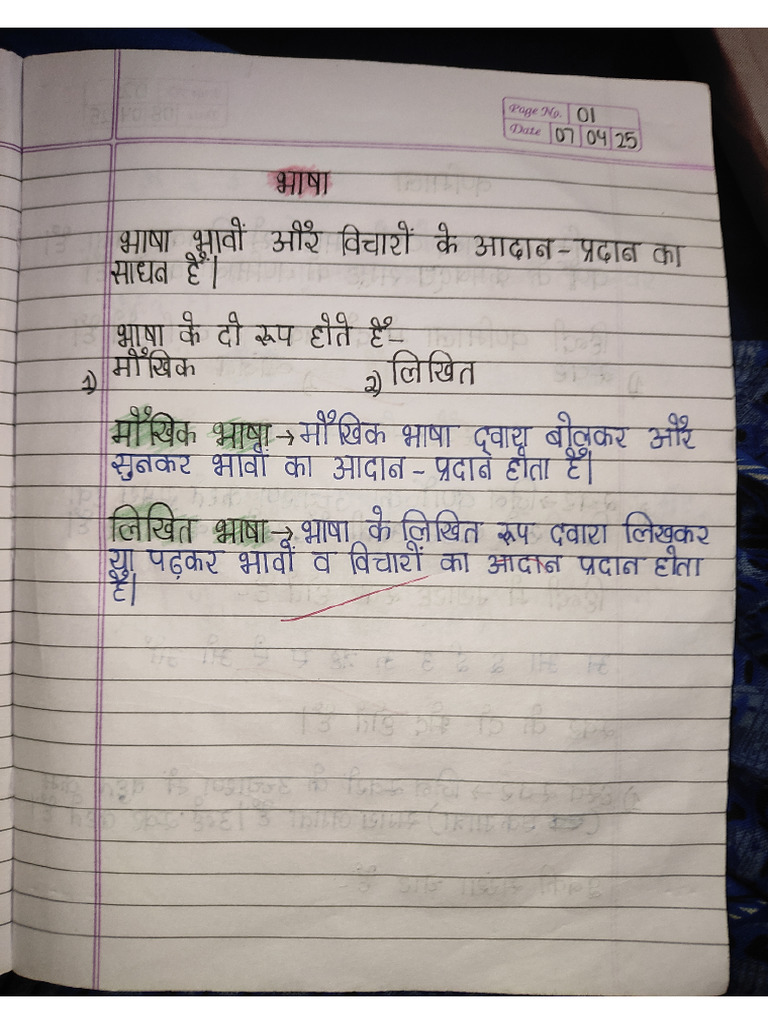 Page No. 01
Date 07 04 25
भाषा
भाषा भावों और विचारों के आदान-प्रदान का
साधन है।
भाषा के दो रूप होते हैं-
1) मौखिक 2) लिखित
मौखिक भाषा → मौखिक भाषा द्वारा बोलकर और
सुनकर भावों का आदान-प्रदान होता है।
लिखित भाषा → भाषा के लिखित रूप दवारा लिखकर
या पढ़कर भावों व विचारों का आदान प्रदान होता
है।